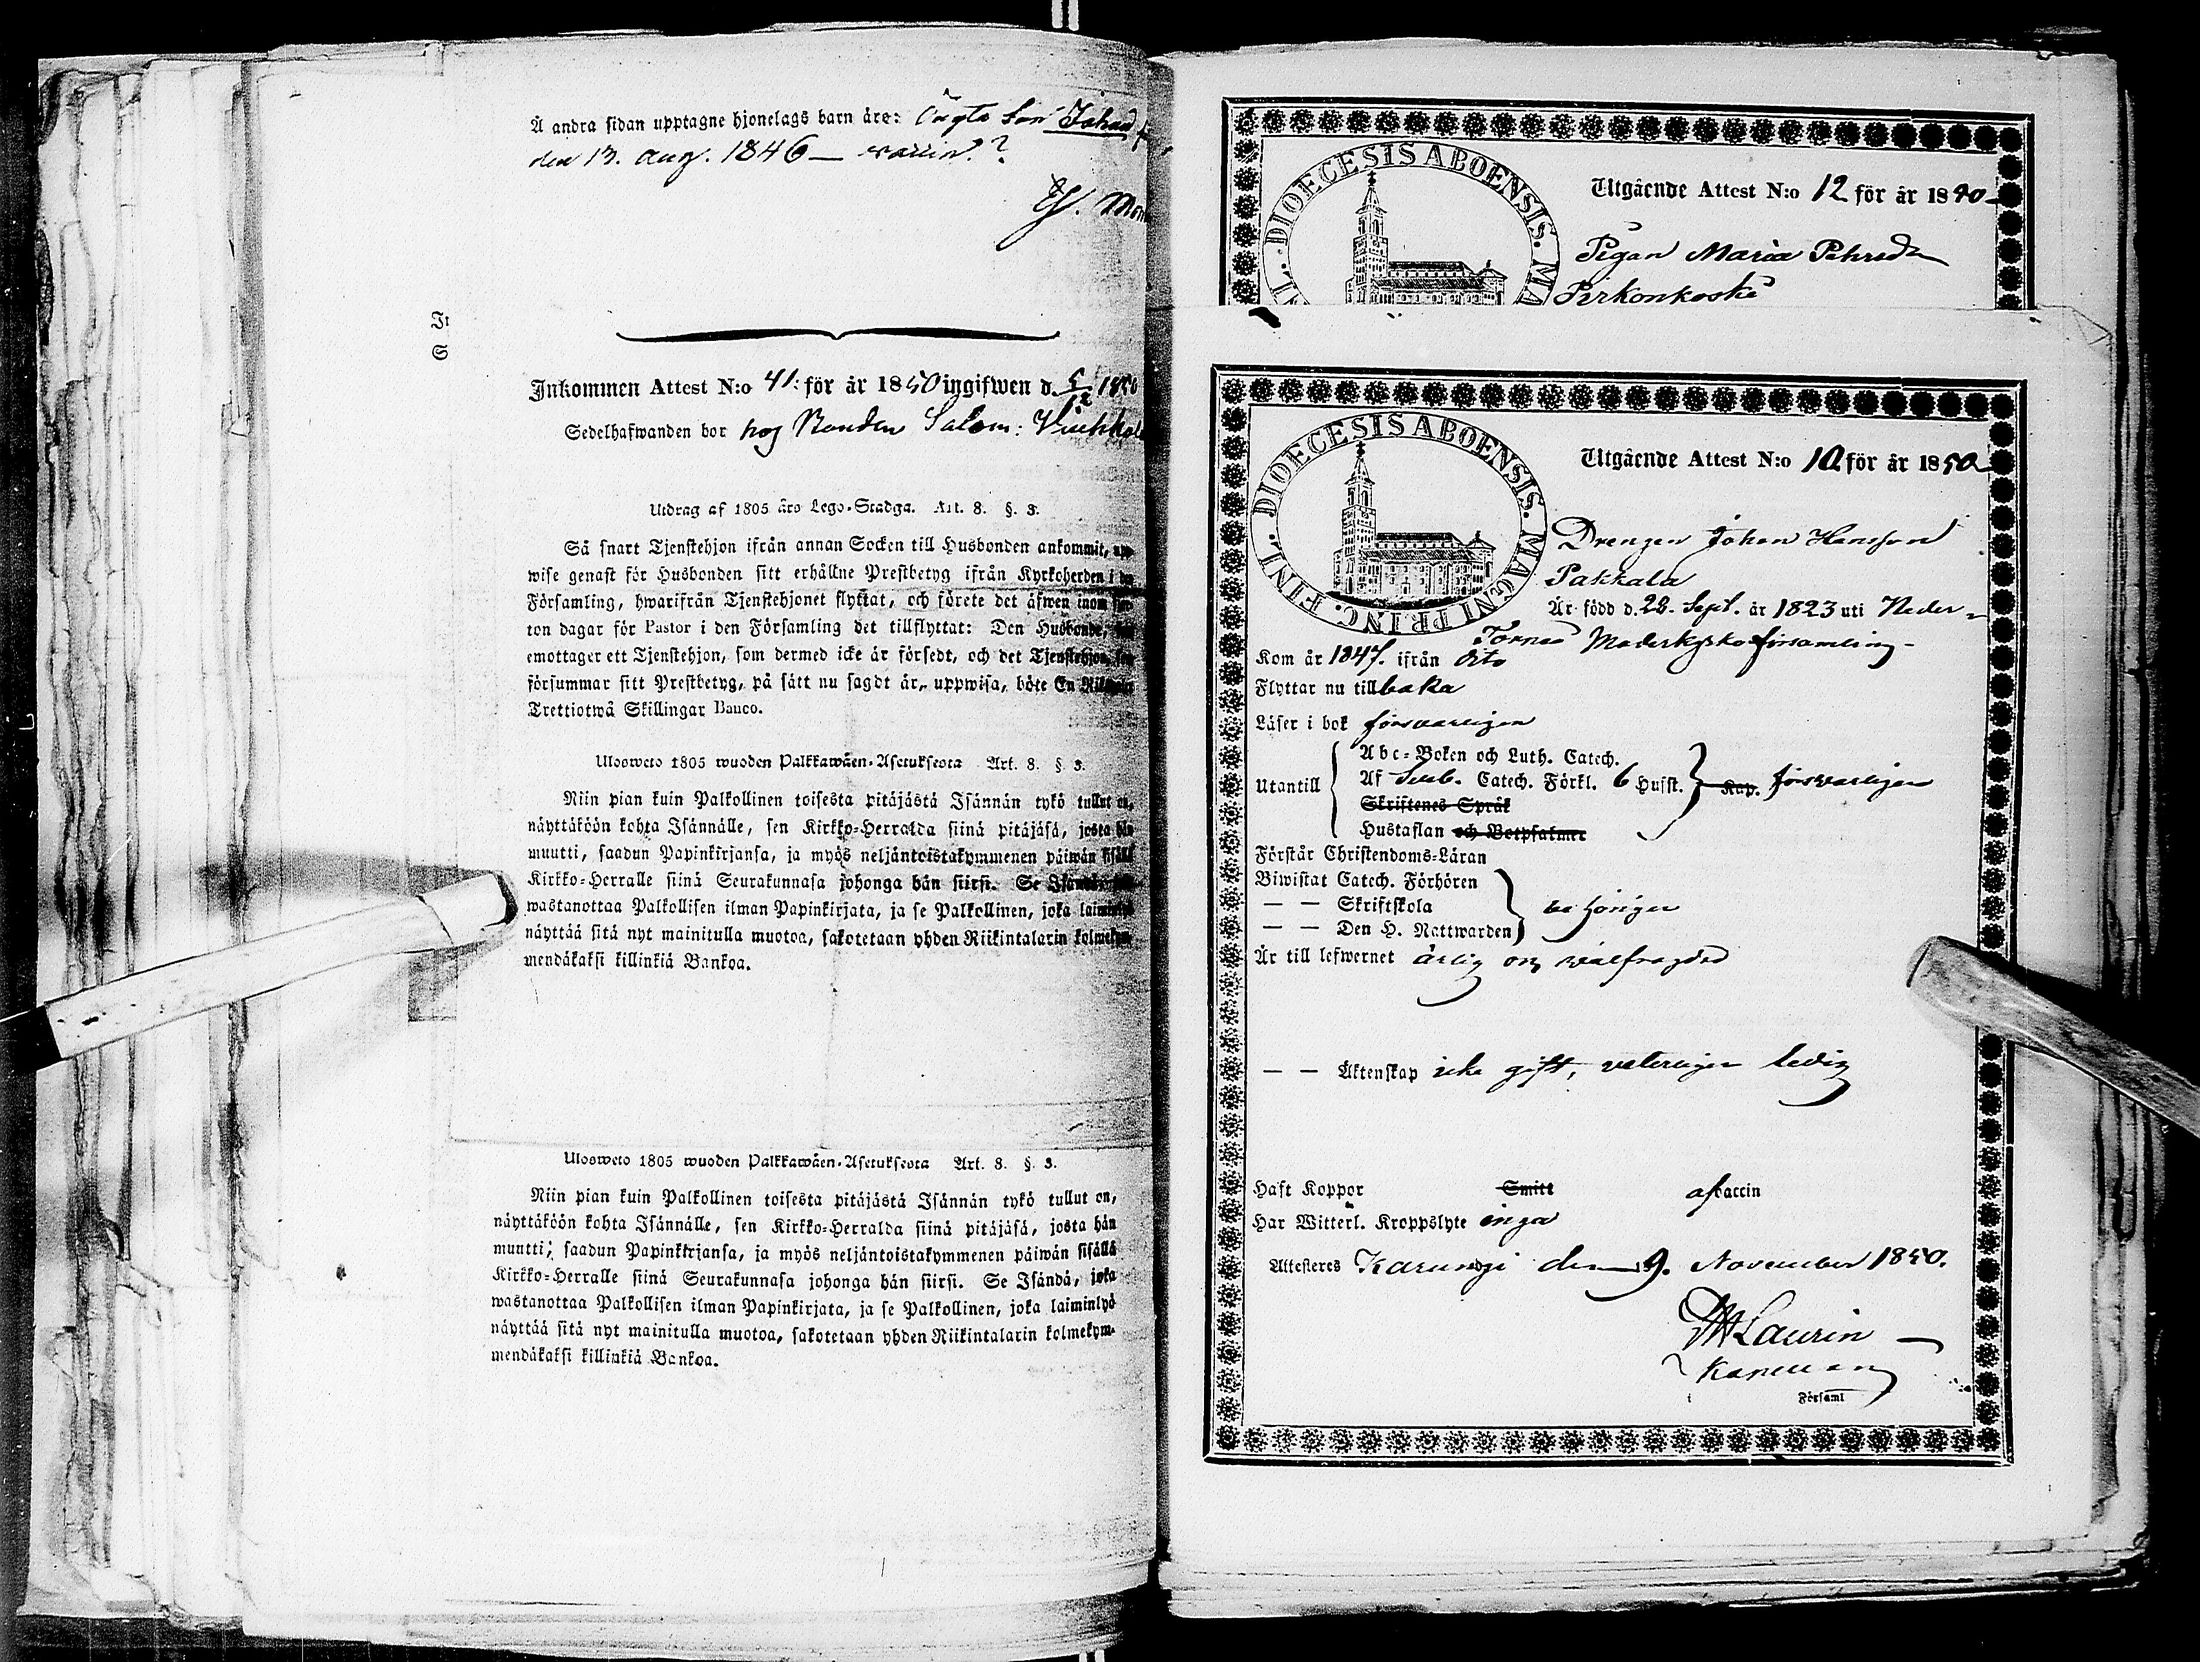 Å andra sidan upptagne hjonelags barn äre: Öagta Son Johan
den 13. aug. 1846 — vaccin.?
It
S
Inkommen Attest N:o 41. för år 1850 ingifwen d. 5/12 1850
Sedelhafwanden bor hos Bonden Salom:
Utdrag af 1805 års Lego-Stadga. Art. 8. §. 3.
Så snart Tjenstehjon ifrån annan Socken till Husbonden ankommit, upp-
wise genast för Husbonden sitt erhållne Prestbetyg ifrån Kyrkoherden i den
Församling, hwarifrån Tjenstehjonet flyttat, och förete det äfwen inom
ton dagar för Pastor i den Församling det tillflyttat: Den Husbonde,
emottager ett Tjenstehjon, som dermed icke är försedt, och det Tjenstehjon, som
försummar sitt Prestbetyg, på sätt nu sagdt är, uppwisa, böte En Riksdaler
Trettiotwå Skillingar Banco.
Ulosweto 1805 wuoden Palkkawäen-Asetuksesta Art. 8. §. 3.
Niin pian kuin Palkollinen toisesta pitäjästä Isännän tykö tullut on,
näyttäköön kohta Isännälle, sen Kirkko-Herralda siinä pitäjäsä, josta hän
muutti, saadun Papinkirjansa, ja myös neljäntoistakymmenen päiwän sisällä
Kirkko-Herralle siinä Seurakunnasa johonga hän siirsi. Se Isändä,
wastanottaa Palkollisen ilman Papinkirjata, ja se Palkollinen, joka laiminlyö
näyttää sitä nyt mainitulla muotoa, sakotetaan yhden Riikintalarin kolmekym-
mendäkaksi killinkiä Bankoa.
Ulosweto 1805 wuoden Palkkawäen-Asetuksesta Art. 8. §. 3.
Niin pian kuin Palkollinen toisesta pitäjästä Isännän tykö tullut on,
näyttäköön kohta Isännälle, sen Kirkko-Herralda siinä pitäjäsä, josta hän
muutti, saadun Papinkirjansa, ja myös neljäntoistakymmenen päiwän sisällä
Kirkko-Herralle siinä Seurakunnasa johonga hän siirsi. Se Isändä, joka
wastanottaa Palkollisen ilman Papinkirjata, ja se Palkollinen, joka laiminlyö
näyttää sitä nyt mainitulla muotoa, sakotetaan yhden Riikintalarin kolmekym-
mendäkaksi killinkiä Bankoa.
DIOECESIS ABOENSIS. MA
Utgående Attest N:o 12 för år 1850
Pigan Maria Pehrsd
Pirkonkoski
DIOECESIS ABOENSIS. MAGNI PRINC. FINL.
Utgående Attest N:o 10 för år 1850
Drengen Johan Hansson
Pakkala
Är född d. 28. Sept. år 1823 uti Neder-
Torneå Moderkyrkoförsamling -
Kom år 1847. ifrån dito
Flyttar nu tillbaka
Läser i bok försvarligen
Abc-Boken och Luth. Catech.
Utantill Af Sveb. Catech. Förkl. 6 Hufst. Kap. försvarligen
Skriftenes Språk
Hustaflan och Botpsalmer
Förstår Christendoms-Läran
Biwistat Catech. Förhören
— — Skriftskola behörigen
— — Den H. Nattwarden
Är till lefwernet ärlig och välfrägdad
— — Äktenskap icke gift, veterligen ledig
Haft Koppor Smitt af Vaccin
Har Witterl. Kroppslyte inga
Attesteres Karungi den 9. November 1850.
Laurin
Kapellan
i Församl